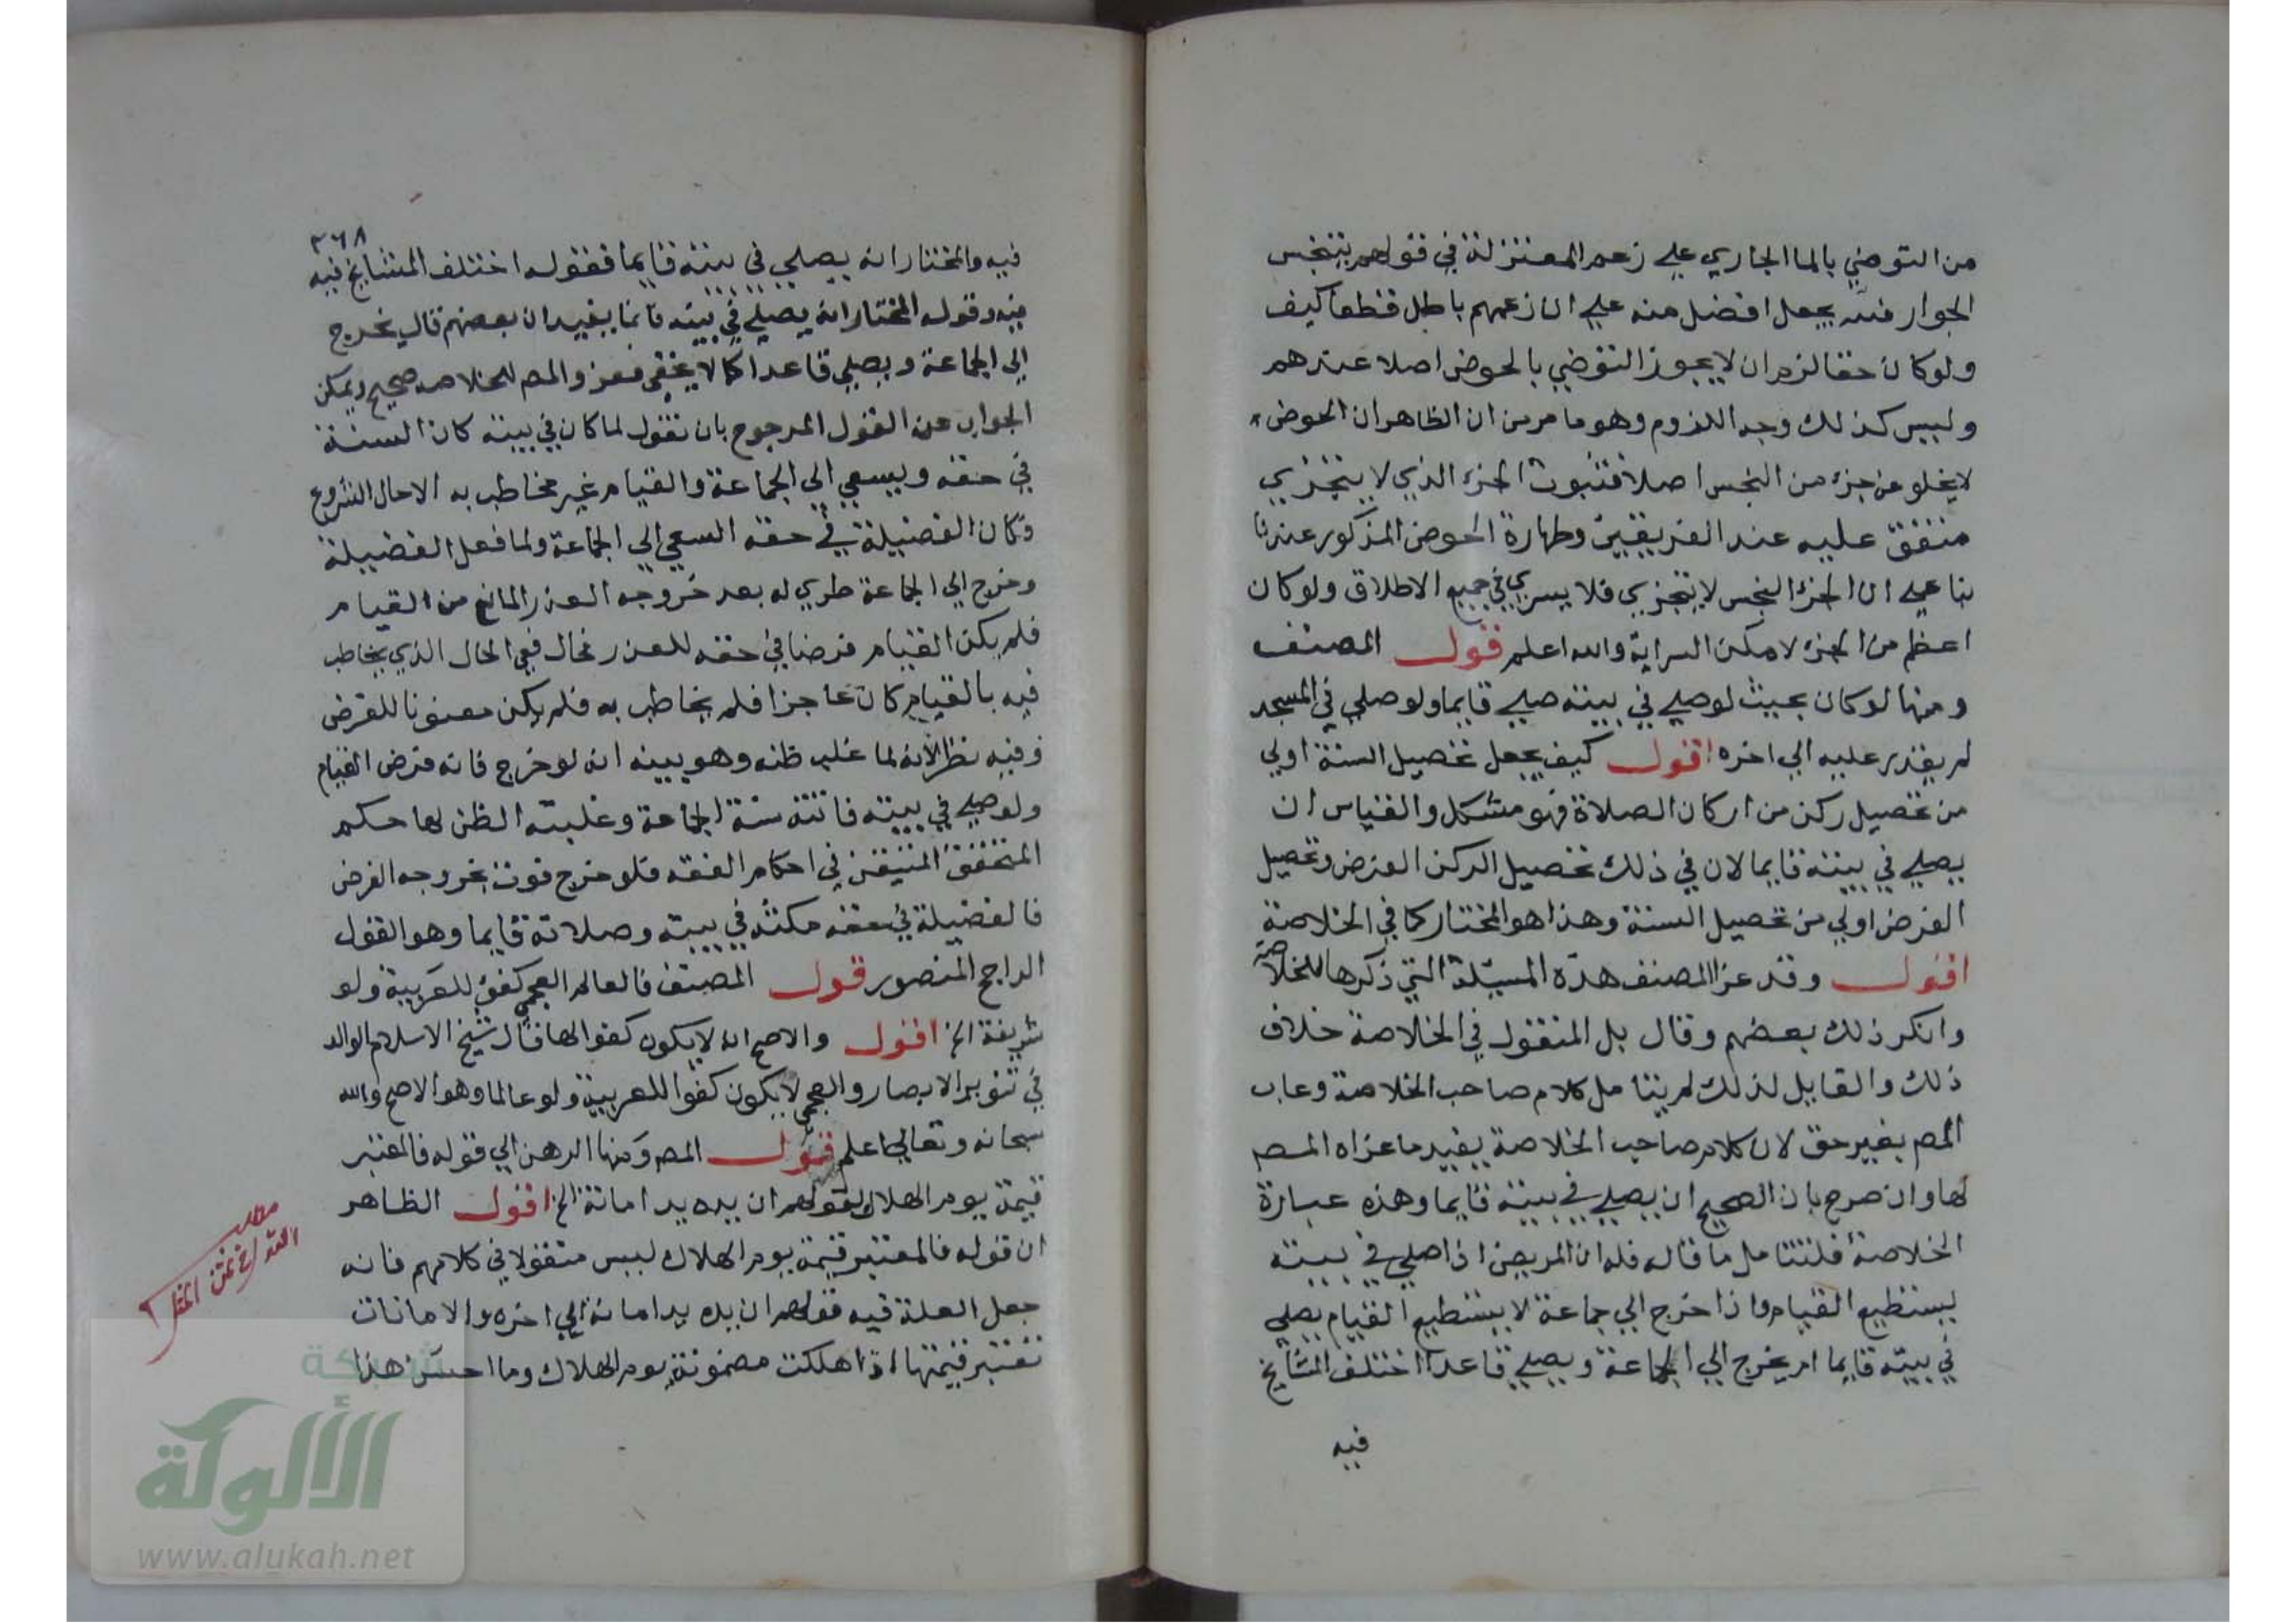 من التوضي بالما الجاري علي زعم المعتزلة في قولهم بتنجس
الجوار فنه يجعل افضل منه علي ان زعمهم باطل قطعا كيف
ولو كان حقا لزم ان لا يجوز التوضي بالحوض اصلا عندهم
وليس كذلك وجه اللزوم وهو ما مر من ان الظاهر ان الحوض
لا يخلو عن جزء من النجس اصلا فثبوت الجزء الذي لا يتجزي
متفق عليه عند الفريقين وطهارة الحوض المذكور عندنا
بنا علي ان الجزء النجس لا يتجزي فلا يسري في جميع الاطلاق ولو كان
اعظم من الجزء لا مكن السراية والله اعلم قول المصنف
ومنها لو كان بحيث لو صلي في بيته صلي قايما ولو صلي في المسجد
لم يقدر عليه الي اخره اقول كيف يجعل تحصيل السنة اولي
من تحصيل ركن من اركان الصلاة فهو مشكل والقياس ان
يصلي في بيته قايما لان في ذلك تحصيل الركن الفرض وتحصيل
الفرض اولي من تحصيل السنة وهذا هو المختار كما في الخلاصة
اقول وقد عزا المصنف هذه المسئلة التي ذكرها للخلاصة
وانكر ذلك بعضهم وقال بل المنقول في الخلاصة خلاف
ذلك والقايل لذلك لم يتامل كلام صاحب الخلاصة وعاب
المص بغير حق لان كلام صاحب الخلاصة يفيد ما عزاه المص
لها وان صرح بان الصحيح ان يصلي في بيته قايما وهذه عبارة
الخلاصة فلنتامل ما قاله فله ان المريض اذا صلي في بيته
يستطيع القيام واذا خرج الي جماعة لا يستطيع القيام يصلي
في بيته قايما ام يخرج الي الجماعة ويصلي قاعدا اختلف المشايخ
فيه
٣٦٨
فيه والمختار انه يصلي في بيته قايما فقوله اختلف المشايخ فيه
فيه وقوله المختار انه يصلي في بيته قائما يفيد ان بعضهم قال يخرج
الي الجماعة ويصلي قاعدا كما لا يخفي فعزو المص للخلاصه صحيح ويمكن
الجواب عن القول المرجوح بان نقول لما كان في بيته كان السنة
في حقه ويسعي الي الجماعة والقيام غير مخاطب به الا حال الشروع
وكان الفضيلة في حقه السعي الي الجماعة ولما فعل الفضيلة
وخرج الي الجماعة طري له بعد خروجه العذر المانع من القيام
فلم يكن القيام فرضا في حقه للعذر فحال ففي الحال الذي يخاطب
فيه بالقيام كان عاجزا فلم يخاطب به فلم يكن مفوتا للفرض
وفيه نظر لانه لما غلب ظنه وهو ببيته انه لو خرج فاته فرض القيام
ولو صلي في بيته فاتته سنة الجماعة وغلبته الظن لها حكم
المتحقق المتيقن في احكام الفقه فلو خرج فوت بخروجه الفرض
فالفضيلة في حقه مكثه في بيته وصلاته قايما وهو القول
الراجح المنصور قول المصنف فالعالم العجمي كفؤ للعربية ولو
شريفة الخ اقول والاصح انه لا يكون كفوا لها قال شيخ الاسلام الوالد
في تنوير الابصار والعجمي لا يكون كفوا للعربية ولو عالما وهو الاصح والله
سبحانه وتعالي اعلم قول المص ومنها الرهن الي قوله فالمعتبر
قيمة يوم الهلاك لقولهم ان يده يد امانة الخ اقول الظاهر
ان قوله فالمعتبر قيمة يوم الهلاك ليس منقولا في كلامهم فانه
جعل العلة فيه قولهم ان يده يد امانة الي اخره والامانات
تعتبر قيمتها اذا هلكت مضمونة يوم الهلاك وما احسن هذا
مطلب
شبكة
الألوكة
www.alukah.net